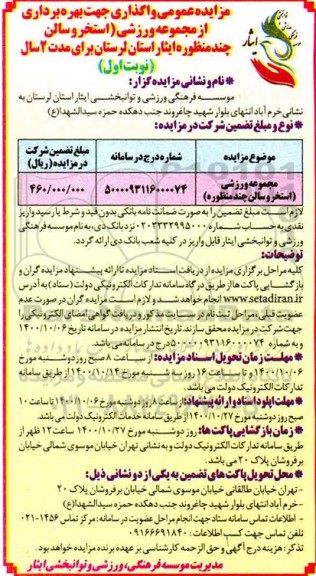 مزایده عمومی واگذاری جهت بهره برداری
از مجموعه ورزشی (استخر و سالن
چند منظوره ایثار استان لرستان برای مدت ۲ سال
(نوبت اول)
ایثار
* نام و نشانی مزایده گزار:
موسسه فرهنگی ورزشی و توانبخشی ایثار استان لرستان به
نشانی خرم آباد انتهای بلوار شهید چاغروند جنب دهکده حمزه سیدالشهدا(ع)
* نوع و مبلغ تضمین شرکت در مزایده:
موضوع مزایده
شماره درج در سامانه
مبلغ تضمین شرکت در مزایده (ریال)
مجموعه ورزشی (استخر و سالن چند منظوره)
۵۰۰۰۰۹۳۱۱۶۰۰۰۰۷۴
۴۶۰/۰۰۰/۰۰۰
لازم است مبلغ تضمین را به صورت ضمانت نامه بانکی بدون قید و شرط یا رسید واریز
نقدی به حساب شماره نزد بانک دی، به نام موسسه فرهنگی
ورزشی و توانبخشی ایثار قابل واریز در کلیه شعب بانک دی ارائه گردد.
توضیحات:
کلیه مراحل برگزاری مزایده از دریافت اسناد مزایده تا ارائه پیشنهاد مزایده گران و
بازگشایی پاکت ها از طریق درگاه سامانه تدارکات الکترونیکی دولت (ستاد) به آدرس
www.setadiran.ir انجام خواهد شد و لازم است مزایده گران در صورت عدم
عضویت قبلی، مراحل ثبت نام در سایت مذکور و دریافت گواهی امضای الکترونیکی را
جهت شرکت در مزایده محقق سازند. تاریخ انتشار مزایده در سامانه تاریخ ۱۴۰۰/۱۰/۰۶
و به شماره ۵۰۰۰۰۹۳۱۱۶۰۰۰۰۷۴ درج در سامانه می باشد.
* مهلت زمان تحویل اسناد مزایده: از ساعت ۸ صبح روز دوشنبه مورخ
۱۴۰۰/۱۰/۰۶ تا ساعت ۱۶ روز سه شنبه مورخ ۱۴۰۰/۱۰/۱۴ از طریق سامانه
تدارکات الکترونیک دولت می باشد.
* مهلت اپلود اسناد و ارائه پیشنهاد: از ساعت ۸ روز دوشنبه مورخ ۱۴۰۰/۱۰/۰۶ تا ساعت ۱۰
صبح روز دوشنبه مورخ ۱۴۰۰/۱۰/۲۷ از طریق سامانه خدمات الکترونیک دولت می باشد.
* زمان بازگشایی پاکت ها: روز دوشنبه مورخ ۱۴۰۰/۱۰/۲۷ ساعت ۱۲ ظهر از
طریق سامانه تدارکات الکترونیک دولت و به نشانی تهران خیابان موسوی شمالی خیابان
برفروشان پلاک ۲۰ می باشد.
* محل تحویل پاکت های تضمین به یکی از دو نشانی ذیل:
- تهران خیابان طالقانی خیابان موسوی شمالی خیابان برفروشان پلاک ۲۰
- خرم آباد انتهای بلوار شهید چاغروند جنب دهکده حمزه سیدالشهدا(ع)
- اطلاعات تماس سامانه ستاد جهت انجام مراحل عضویت در سامانه: مرکز تماس ۱۴۵۶-۰۲۱
تلفن تماس جهت کسب اطلاعات: ۰۹۱۶۶۶۹۱۸۴۰
تذکر: هزینه درج آگهی و حق الزحمه کارشناسی بر عهده برنده مزایده خواهد بود.
مدیریت موسسه فرهنگی، ورزشی و توانبخشی ایثار